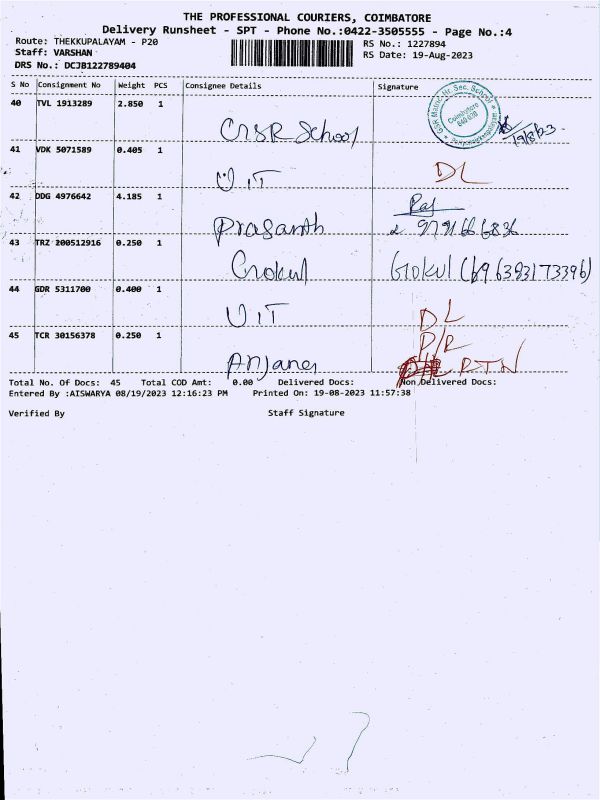 THE PROFESSIONAL COURIERS, COIMBATORE
Delivery Runsheet - SPT - Phone No.:0422-3505555 - Page No.:4
Route: THEKKUPALAYAM - P20
RS No.: 1227894
Staff: VARSHAN
RS Date: 19-Aug-2023
DRS No.: DCJB122789404
S No Consignment No Weight PCS Consignee Details Signature
40 TVL 1913289 2.850 1 GSR School 19/8/23
Coimbatore
41 VDK 5071589 0.405 1 UIT DL
42 DDG 4976642 4.185 1 Prasanth Raj 9791666836
43 TRZ 200512916 0.250 1 Gokul Gokul
44 GDR 5311700 0.400 1 UIT DL
45 TCR 30156378 0.250 1 Anjane D/R RTN
Total No. Of Docs: 45 Total COD Amt: 0.00 Delivered Docs: Non Delivered Docs:
Entered By :AISWARYA 08/19/2023 12:16:23 PM Printed On: 19-08-2023 11:57:38
Verified By Staff Signature